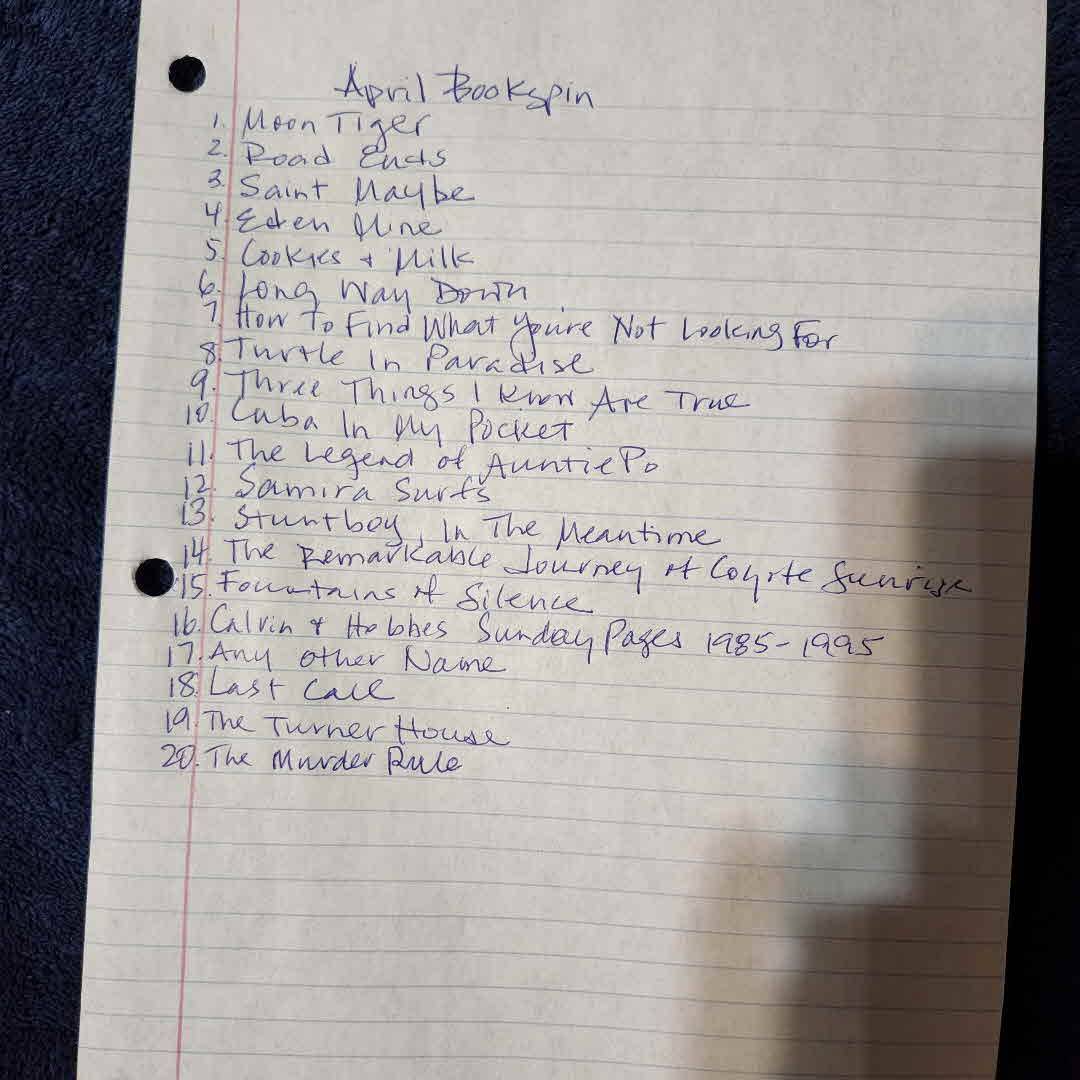 April Bookspin
1. Moon Tiger
2. Road Ends
3. Saint Maybe
4. Eden Mine
5. Cookies + Milk
6. Long Way Down
7. How To Find What You're Not Looking For
8. Turtle In Paradise
9. Three Things I Know Are True
10. Cuba In My Pocket
11. The Legend of Auntie Po
12. Samira Surfs
13. Stuntboy, In The Meantime
14. The Remarkable Journey of Coyote Sunrise
15. Fountains of Silence
16. Calvin + Hobbes Sunday Pages 1985-1995
17. Any Other Name
18. Last Call
19. The Turner House
20. The Murder Rule